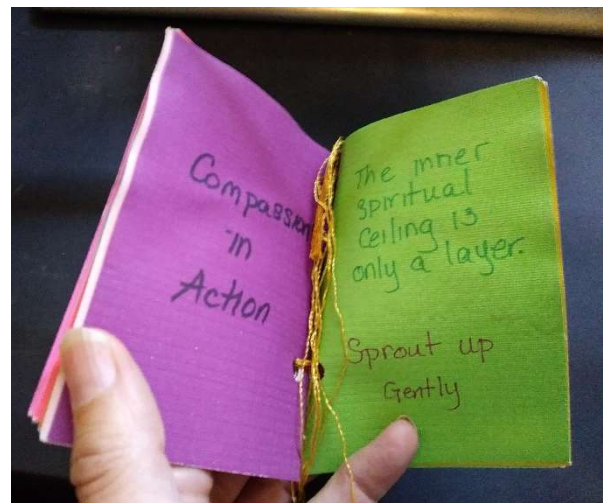 Compassion
in
Action
The inner
spiritual
Ceiling is
only a layer.
Sprout up
Gently